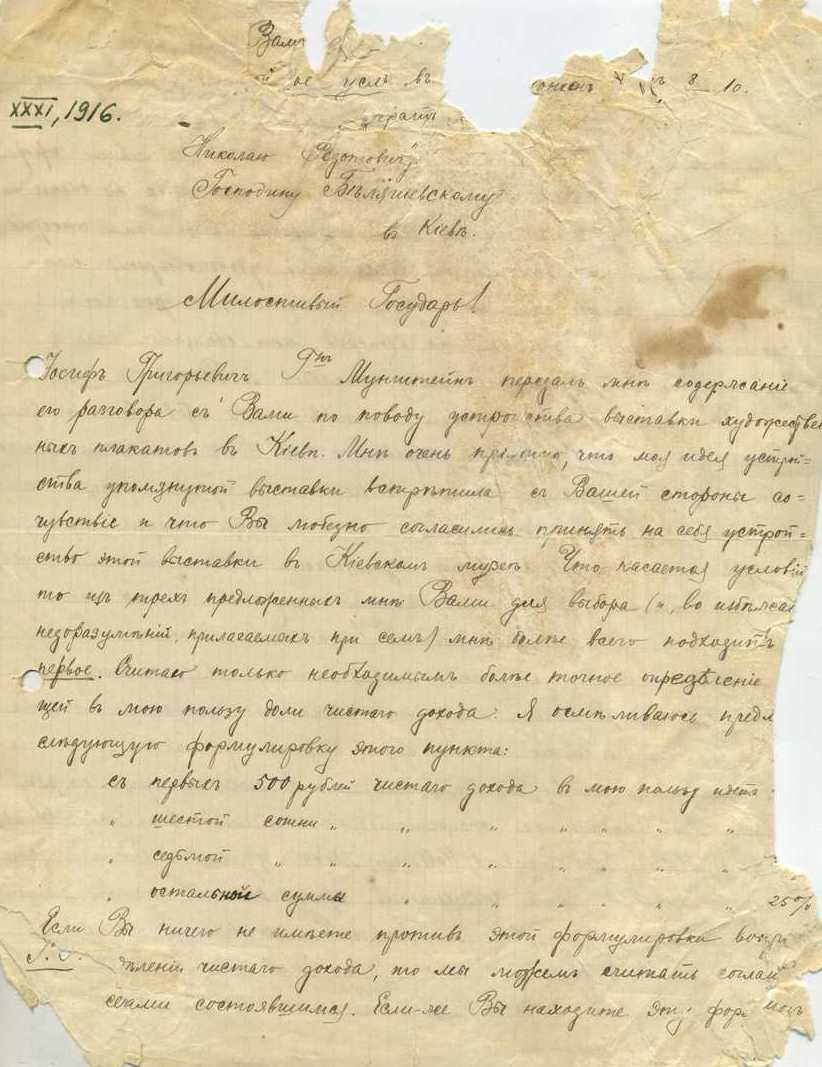 Вами
усл въ 8 10.
XXXI, 1916.
Николаю Ѳедотовичу
Господину Бѣляшевскому
въ Кіевѣ.
Милостивый Государь!
Іосифъ Григорьевичъ Г-нъ Мунштейнъ передалъ мнѣ содержаніе
его разговора съ Вами по поводу устройства выставки художествен
ныхъ плакатовъ въ Кіевѣ. Мнѣ очень пріятно, что моя идея устрой=
ства упомянутой выставки встрѣтила съ Вашей стороны со=
чувствіе и что Вы любезно согласились принять на себя устрой=
ство этой выставки въ Кіевскомъ музеѣ. Что касается условій
то изъ трехъ предложенныхъ мнѣ Вами для выбора (и, во избѣжан
недоразумѣній, прилагаемыхъ при семъ) мнѣ болѣе всего подходитъ
первое. Считаю только необходимымъ болѣе точное опредѣленіе
щей въ мою пользу доли чистаго дохода. Я осмѣливаюсь предл
слѣдующую формулировку этого пункта:
съ первыхъ 500 рублей чистаго дохода въ мою пользу идетъ
" шестой сотни " " " " " " "
" седьмой " " " " " " " "
" остальной суммы " " " " " " 25%
Если Вы ничего не имѣете противъ этой формулировки
дѣленія чистаго дохода, то мы можемъ считать соглаш
состоявшимся. Если-же Вы находите эту фор